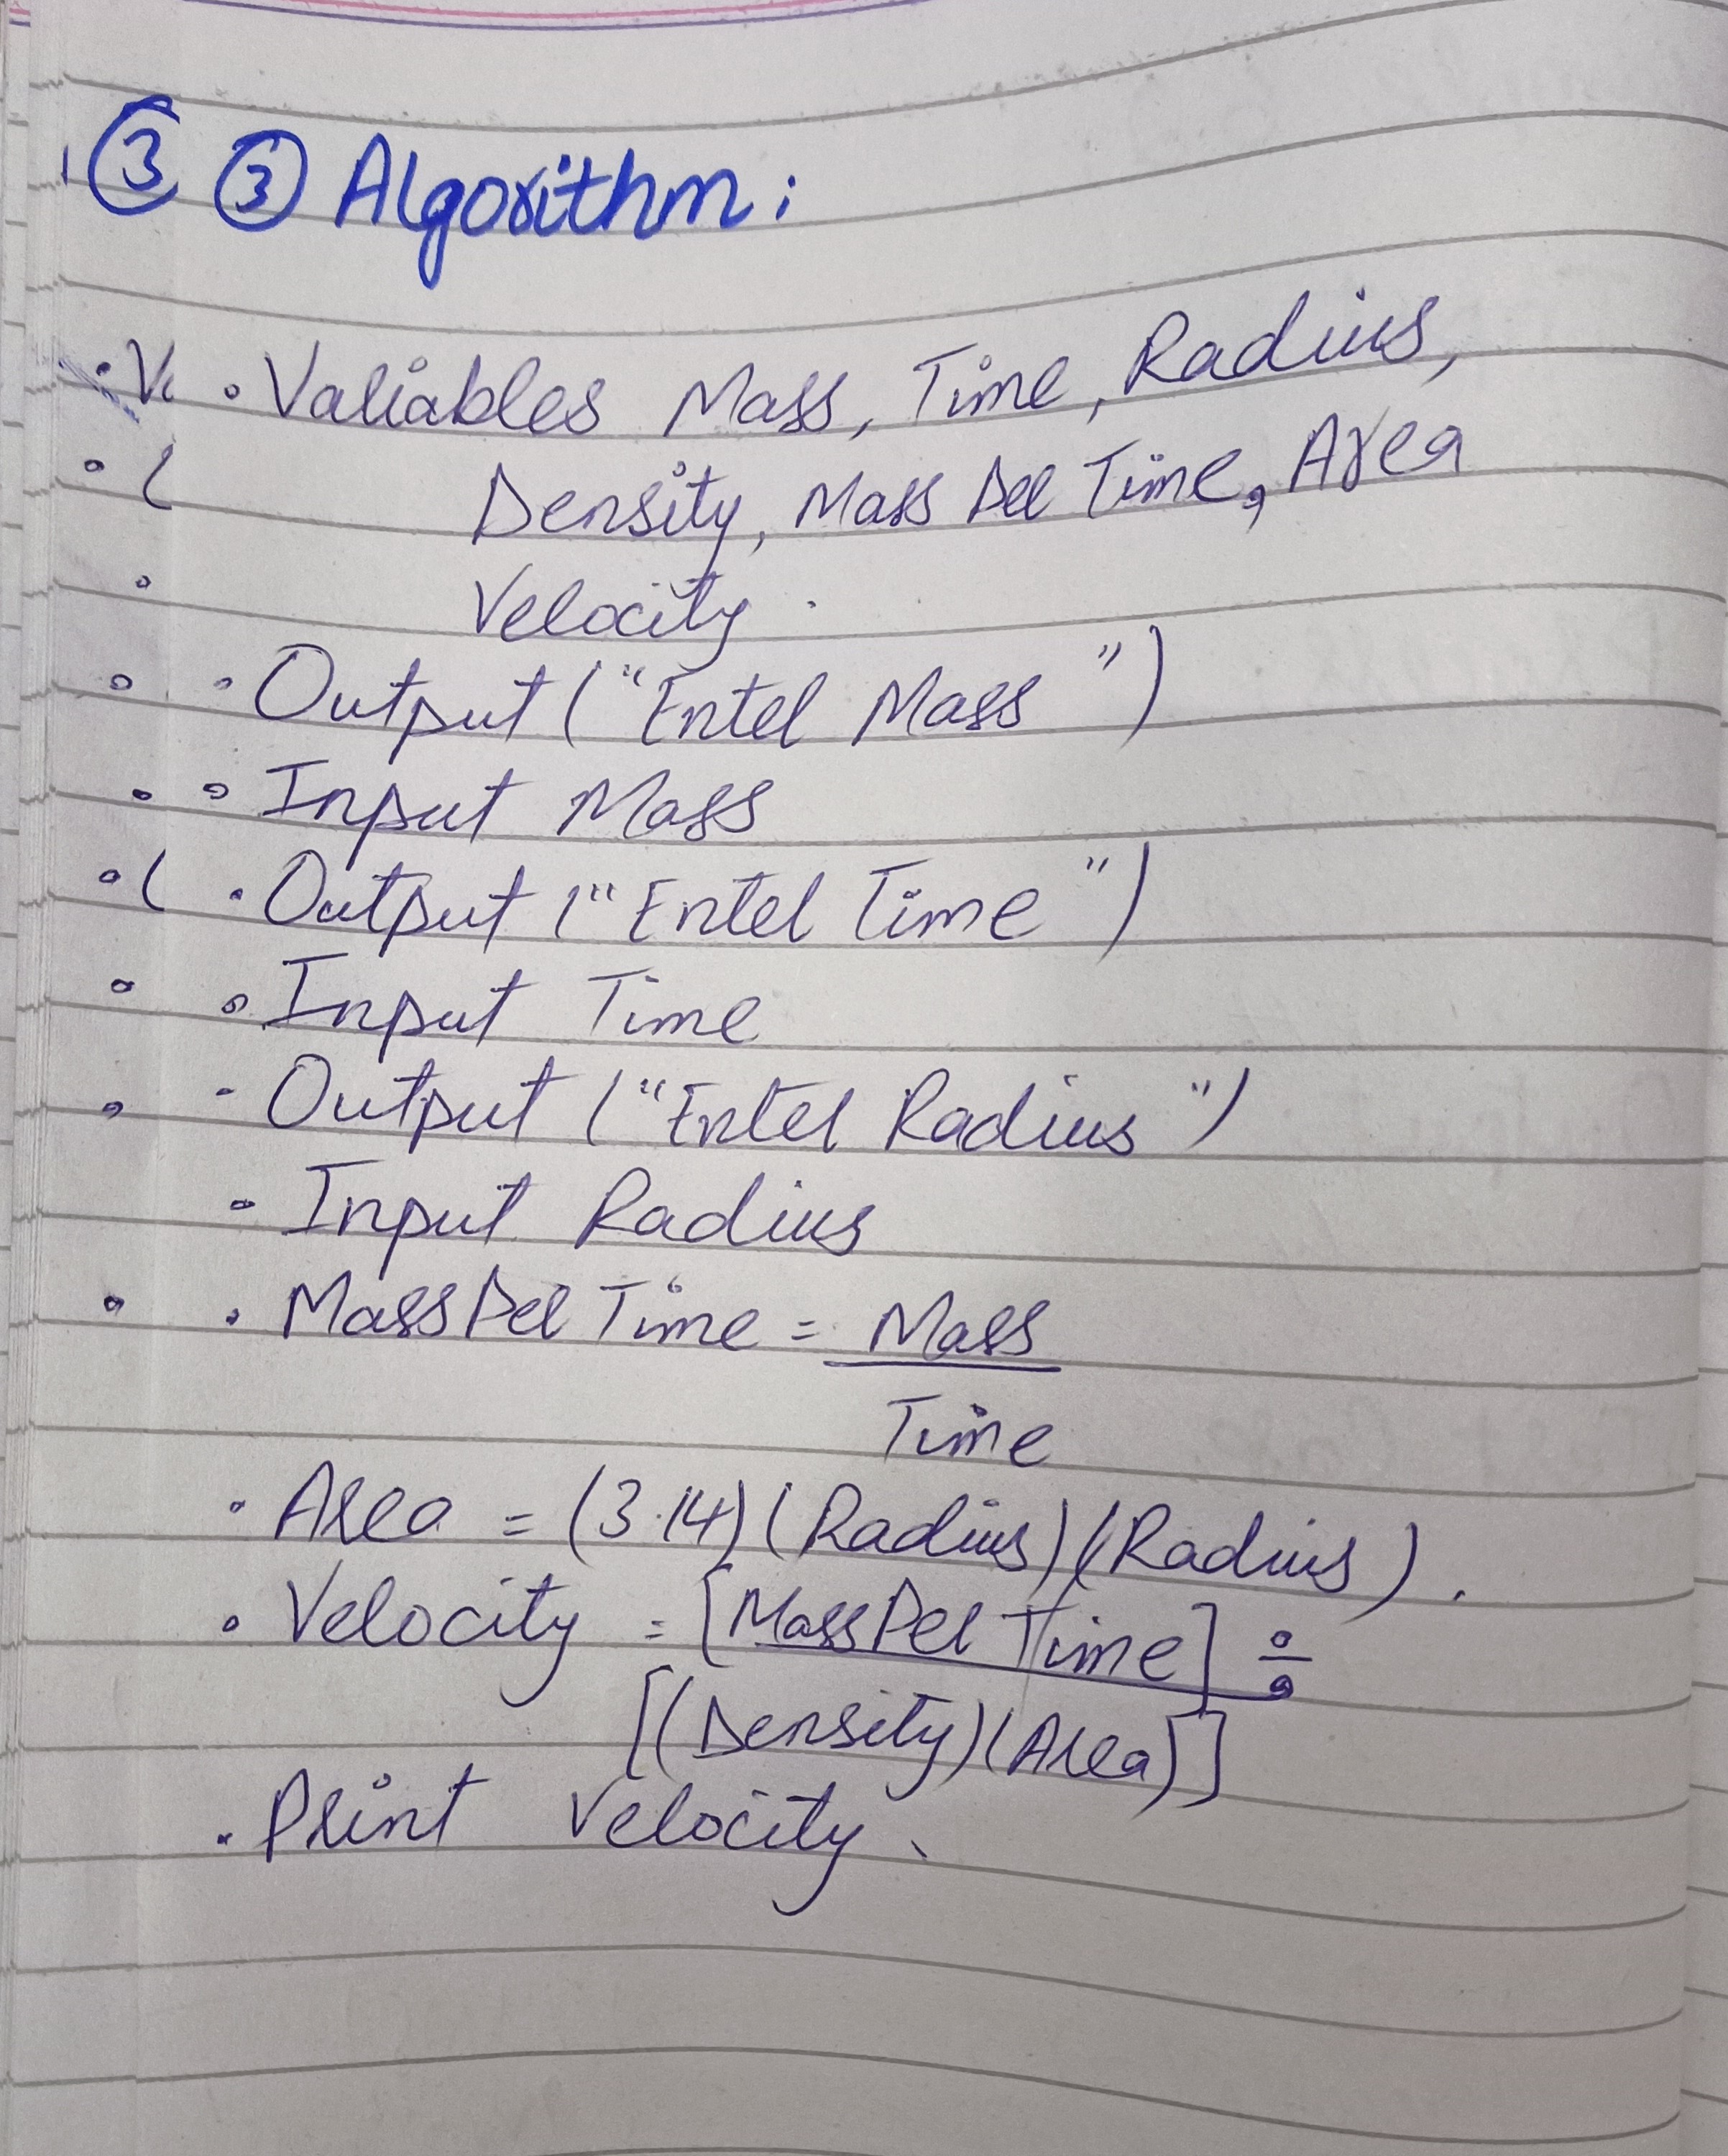 ③ ③ Algorithm:
• Variables Mass, Time, Radius,
Density, Mass Per Time, Area
Velocity.
• Output ("Enter Mass")
• Input Mass
• Output ("Enter Time")
• Input Time
• Output ("Enter Radius")
• Input Radius
• MassPerTime = Mass
Time
• Area = (3.14)(Radius)(Radius).
• Velocity = [MassPerTime] ÷
[(Density)(Area)]
• Print Velocity.